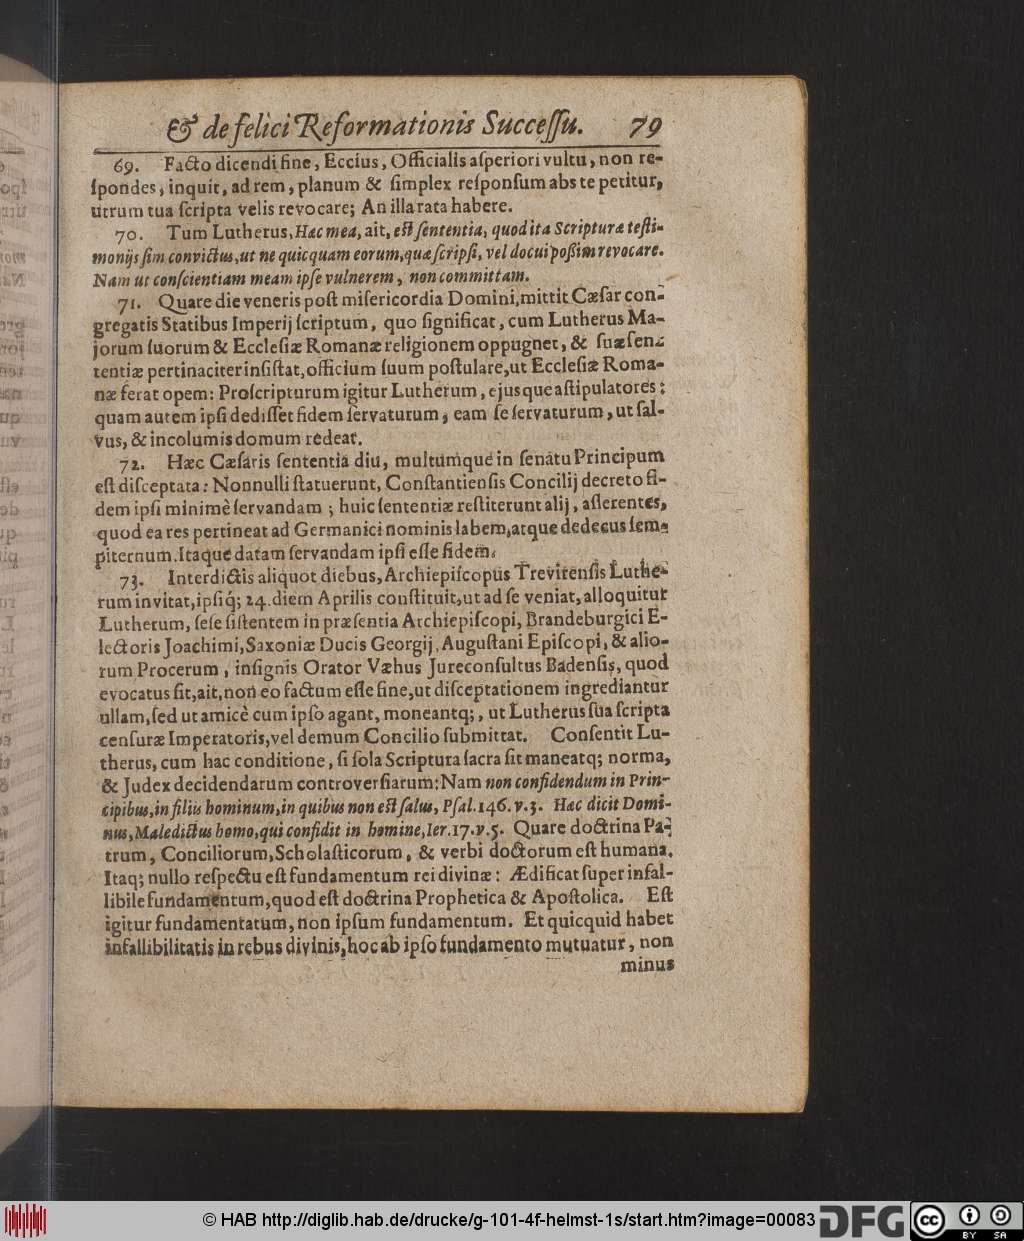 & de felici Reformationis Succeſſu. 79
69. Facto dicendi fine, Eccius, Officialis aſperiori vultu, non re-
ſpondes, inquit, ad rem, planum & ſimplex reſponſum abs te petitur,
utrum tua ſcripta velis revocare; An illa rata habere.
70. Tum Lutherus, Hæc mea, ait, eſt ſententia, quod ita Scripturæ teſti-
monijs ſim convictus, ut ne quicquam eorum, quæ ſcripſi, vel docui poſſim revocare.
Nam ut conſcientiam meam ipſe vulnerem, non committam.
71. Quare die veneris poſt miſericordia Domini, mittit Cæſar con-
gregatis Statibus Imperij ſcriptum, quo ſignificat, cum Lutherus Ma-
jorum ſuorum & Eccleſiæ Romanæ religionem oppugnet, & ſuæ ſen-
tentiæ pertinaciter inſiſtat, officium ſuum poſtulare, ut Eccleſiæ Roma-
næ ferat opem: Proſcripturum igitur Lutherum, ejusque aſtipulatores:
quam autem ipſi dediſſet fidem ſervaturum, eam ſe ſervaturum, ut ſal-
vus, & incolumis domum redeat.
72. Hæc Cæſaris ſententia diu, multumque in ſenatu Principum
eſt diſceptata: Nonnulli ſtatuerunt, Conſtantienſis Concilij decreto fi-
dem ipſi minimè ſervandam; huic ſententiæ reſtiterunt alij, aſſerentes,
quod ea res pertineat ad Germanici nominis labem, atque dedecus ſem-
piternum. Itaque datam ſervandam ipſi eſſe fidem.
73. Interdictis aliquot diebus, Archiepiſcopus Trevirenſis Luthe-
rum invitat, ipſiq́; 24. diem Aprilis conſtituit, ut ad ſe veniat, alloquitur
Lutherum, ſeſe ſiſtentem in præſentia Archiepiſcopi, Brandeburgici E-
lectoris Joachimi, Saxoniæ Ducis Georgij, Auguſtani Epiſcopi, & alio-
rum Procerum, inſignis Orator Væhus Jureconſultus Badenſis, quod
evocatus ſit, ait, non eo factum eſſe fine, ut diſceptationem ingrediantur
ullam, ſed ut amicè cum ipſo agant, moneantq;, ut Lutherus ſua ſcripta
cenſuræ Imperatoris, vel demum Concilio ſubmittat. Conſentit Lu-
therus, cum hac conditione, ſi ſola Scriptura ſacra ſit maneatq; norma,
& Judex decidendarum controverſiarum: Nam non confidendum in Prin-
cipibus, in filiis hominum, in quibus non eſt ſalus, Pſal. 146. v. 3. Hæc dicit Domi-
nus, Maledictus homo, qui confidit in homine, Ier. 17. v. 5. Quare doctrina Pa-
trum, Conciliorum, Scholaſticorum, & verbi doctorum eſt humana.
Itaq; nullo reſpectu eſt fundamentum rei divinæ: Ædificat ſuper infal-
libile fundamentum, quod eſt doctrina Prophetica & Apoſtolica. Eſt
igitur fundamentatum, non ipſum fundamentum. Et quicquid habet
infallibilitatis in rebus divinis, hoc ab ipſo fundamento mutuatur, non
minus
© HAB http://diglib.hab.de/drucke/g-101-4f-helmst-1s/start.htm?image=00083 DFG cc BY SA